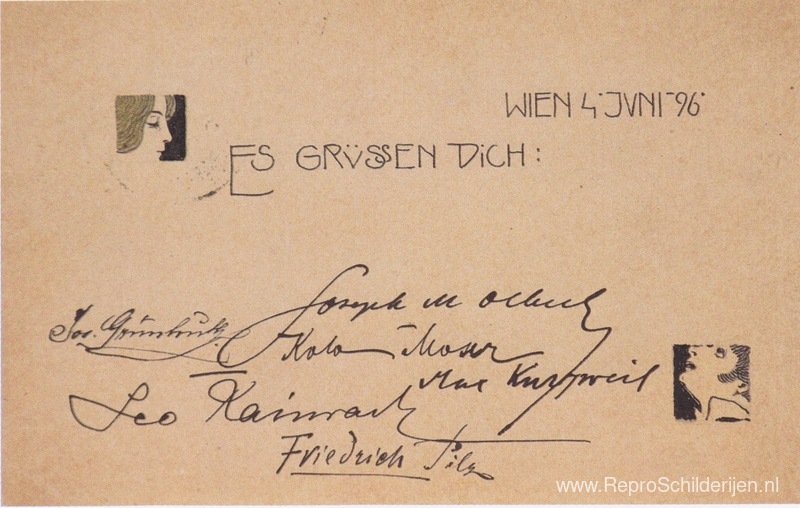 WIEN 4. JVNI 96.
ES GRÜSSEN DiCH:
Joseph M Olbrich
Jos.
Kolo Moser
Max Kurzweil
Leo Kainradl
Friedrich Pilz
www.ReproSchilderijen.nl